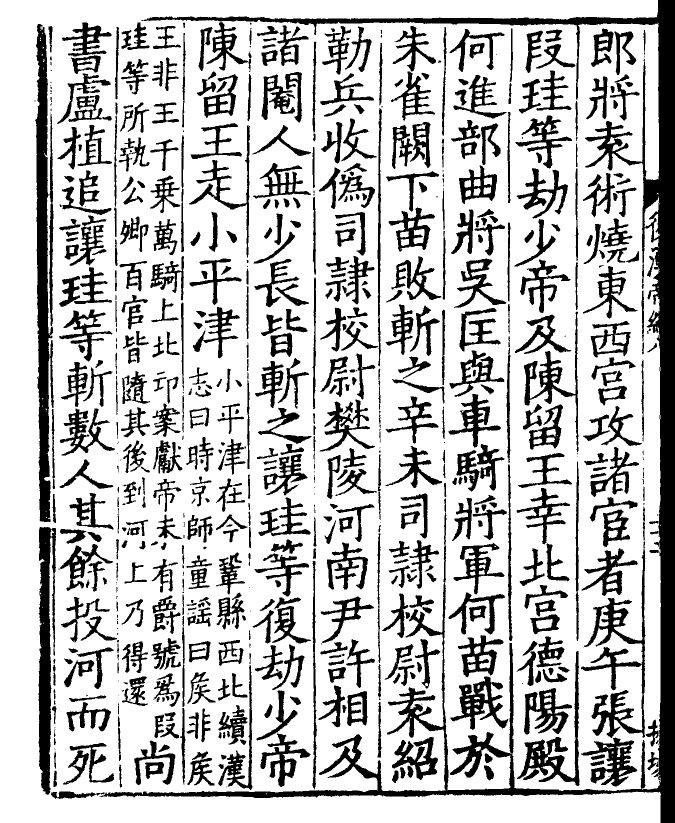 郎將袁術燒東西宮攻諸宦者庚午張讓
段珪等劫少帝及陳留王幸北宮德陽殿
何進部曲將吳匡與車騎將軍何苗戰於
朱雀闕下苗敗斬之辛未司隸校尉袁紹
勒兵收僞司隸校尉樊陵河南尹許相及
諸閹人無少長皆斬之讓珪等復劫少帝
陳留王走小平津
小平津在今鞏縣西北續漢
志曰時京師童謡曰矦非矦
王非王千乗萬騎上北邙案獻帝未有爵號爲段
珪等所執公卿百官皆隨其後到河上乃得還
尚
書盧植追讓珪等斬數人其餘投河而死